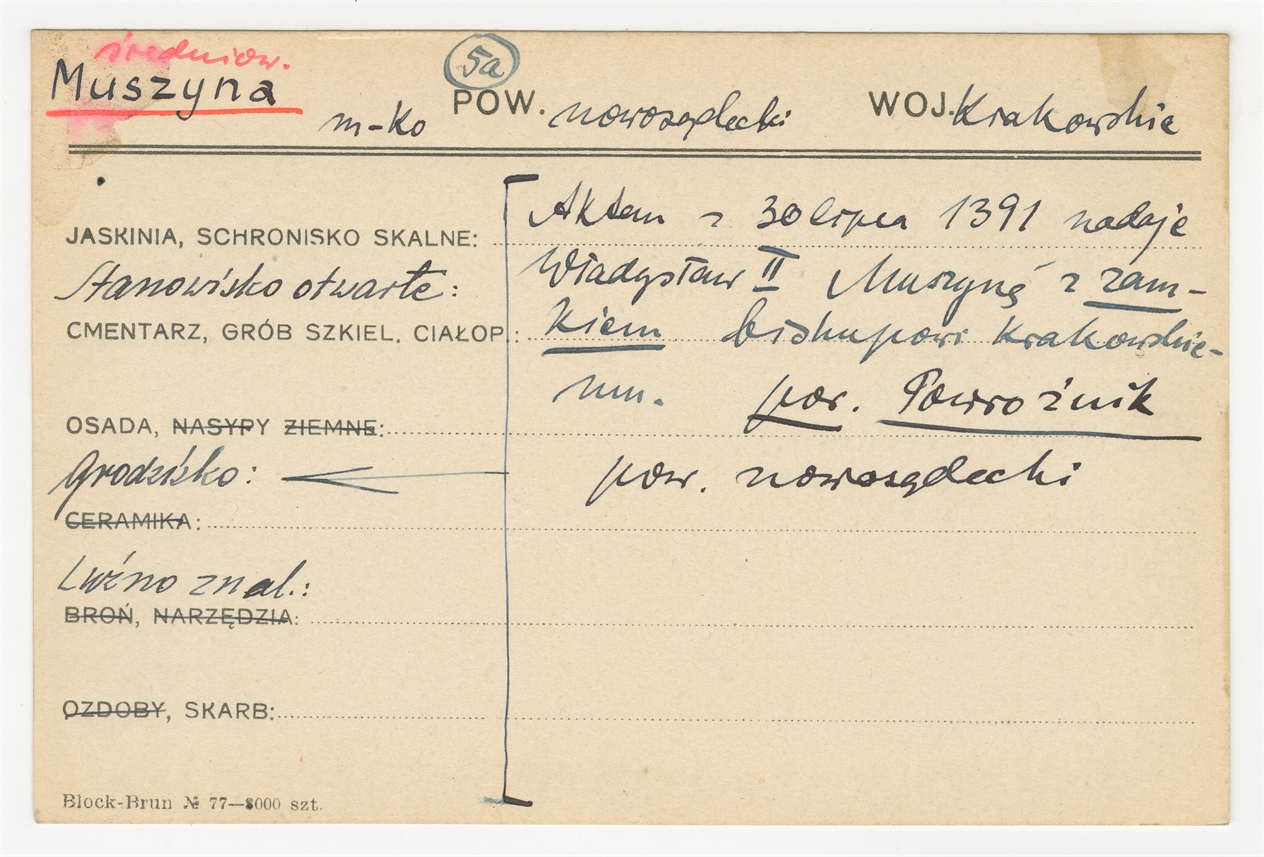 średniow.
5a
Muszyna
m-ko POW. nowosądecki WOJ. Krakowskie
Aktem z 30 lipca 1391 nadaje
JASKINIA, SCHRONISKO SKALNE:
Władysław II Muszynę z zam-
Stanowisko otwarte:
CMENTARZ, GRÓB SZKIEL. CIAŁOP.: kiem biskupowi krakowskie-
mu. por. Powroźnik
OSADA, NASYPY ZIEMNE:
Grodzisko: pow. nowosądecki
CERAMIKA:
Luźno znal.:
BROŃ, NARZĘDZIA:
OZDOBY, SKARB:
Block-Brun № 77—8000 szt.